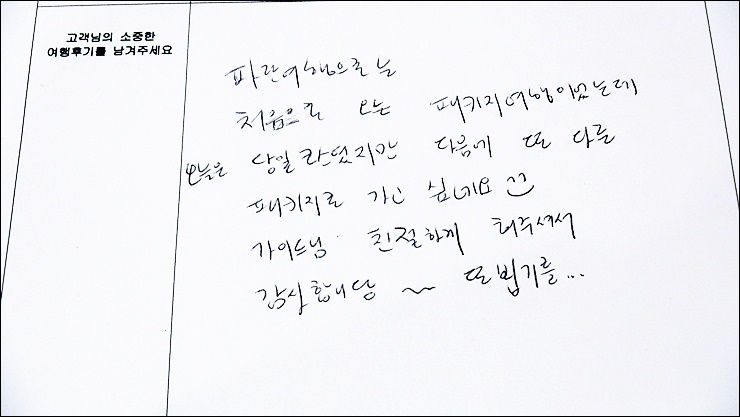 고객님의 소중한
여행후기를 남겨주세요
파란여행으로는
처음으로 오는 패키지여행이었는데
오늘은 당일 왔었지만 다음에 또 다른
패키지로 가고 싶네요
가이드님 친절하게 해주셔서
감사합니당 ~ 또 뵙기를...